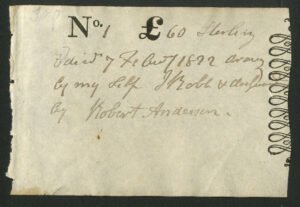 No. 1 £60 Sterling
7 Febry 1822 drawn
by my self J Robb &
by Robert Anderson.